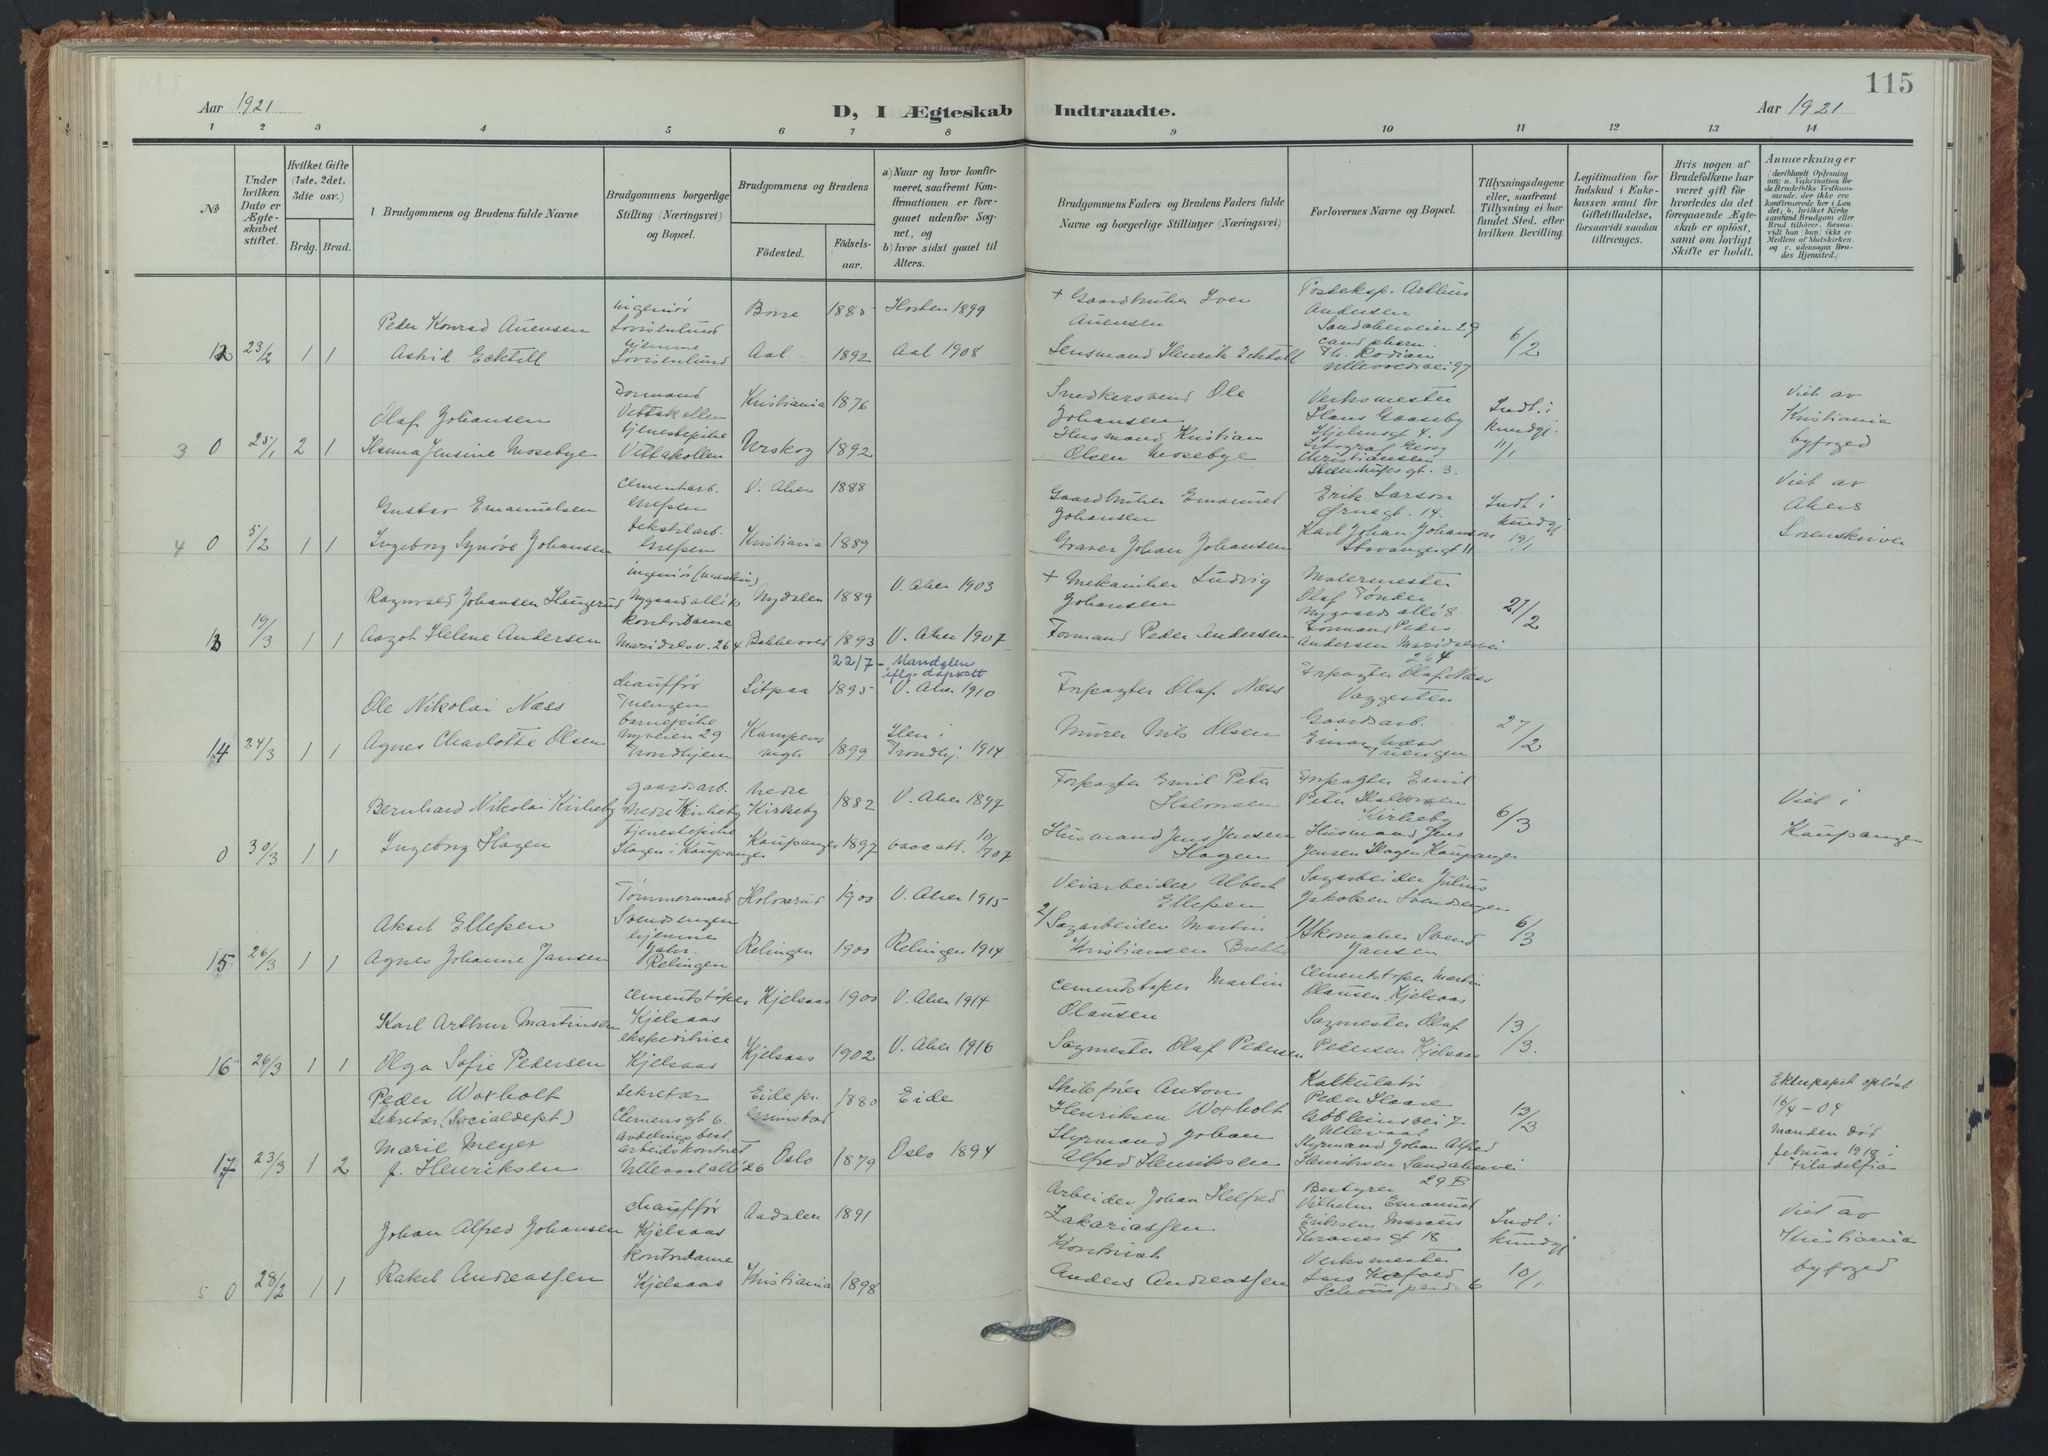 115
Aar 1921
D, I Ægteskab Indtraadte.
Aar 1921
1 2 3 4 5 6 7 8 9 10 11 12 13 14
No
Under hvilken Dato er Ægteskabet stiftet.
Hvilket Gifte (1ste, 2det, 3die osv.)
Brdg. Brud.
Brudgommens og Brudens fulde Navne
Brudgommens borgerlige Stilling (Næringsvei) og Bopæl.
Brudgommens og Brudens
Fødested.
Fødselsaar.
a) Naar og hvor konfirmeret, saafremt Konfirmationen er foregaaet udenfor Sognet, og
b) hvor sidst gaaet til Alters.
Brudgommens Faders og Brudens Faders fulde Navne og borgerlige Stillinger (Næringsvei)
Forlovernes Navne og Bopæl.
Tillysningsdagene eller, saafremt Tillysning ei har fundet Sted, efter hvilken Bevilling.
Legitimation for Indskud i Enkekassen samt for Giftetilladelse, forsaavidt saadan tiltrænges.
Hvis nogen af Brudefolkene har været gift før hvorledes da det foregaaende Ægteskab er opløst, samt om lovligt Skifte er holdt.
Anmærkninger
12 23/2 1 1
Peder Konrad Auensen
Astrid Ecktell
ingeniør
Lovisenlund
hjemme
Lovisenlund
Borre 1885 Horten 1899
Aal 1892 Aal 1908
+ Gaardbruker Iver
Auensen
Lensmand Henrik Ecktell
Posteksp. Arthur
Andersen
Sandakerveien 29
cand pharm.
Ullevoldsvei 97
6/2
3 0 25/1 2 1
Olaf Johansen
Hanna Jensine Mosebye
Formand
Vettakollen
tjenestepike
Vettakollen
Kristiania 1876
Urskog 1892
Snedkersvend Ole
Johansen
Husmand Kristian
Olsen Mosebye
Verksmester
Hans Gaaseby
Hjelmsgt 4.
Litograf Georg
Christiansen
Steenstrups gt. 3.
Indt. i
kundgj.
11/1
Viet av
Kristiania
byfoged
4 0 5/2 1 1
Gustav Emanuelsen
Ingeborg Synøve Johansen
cementarb.
Grefsen
tekstilarb.
Grefsen
Ø. Aker 1888
Kristiania 1889
Gaardbruker Emanuel
Johansen
Graver Johan Johansen
Erik Larson
Ørnegt. 14.
Karl Johan Johansen
Stavangergt 11
Indt i
kundgj
19/1
Viet av
Akers
Sorenskriver
13 19/3 1 1
Ragnvald Johansen Haugerud
Aagot Helene Andersen
ingeniør (maskin)
Nygaards allé 10
kontordame
Maridalsv. 264
Nydalen 1889 V. Aker 1903
Bakkevold 1893 V. Aker 1907
+ Mekaniker Ludvig
Johansen
Formand Peder Andersen
Malermester
Olaf Tønder
Nygaards allé 8
Formand Peder
Andersen Maridalsvei
264
27/2
22/7 - Mandalen
iflg. dåpsatt
14 24/3 1 1
Ole Nikolai Næss
Agnes Charlotte Olsen
chauffør
Tuengen
barnepike
Nyveien 29
Trondhjem
Sitpaa 1895 V. Aker 1910
1899 Ilen i
Trondhj. 1914
Forpagter Olaf Næss
Murer Nils Olsen
Forpagter Olaf Næss
Vaggesten
Gaardsarb.
Einar Næss
Tuengen
27/2
0 30/3 1 1
Bernhard Nikolai Kirkeby
Ingeborg Hagen
gaardsarb.
Nedre Kirkeby
tjenestepike
Hagen i Kaupanger
Nedre
Kirkeby 1882 V. Aker 1897
Kaupanger 1897
Forpagter Emil Peter
Halvorsen
Husmand Jens Jensen
Hagen
Forpagter Emil
Peter Halvorsen
Kirkeby
Husmand Jens
Jensen Hagen Kaupanger
6/3
Viet i
Kaupanger
15 26/3 1 1
Aksel Ellefsen
Agnes Johanne Jansen
Tømmermand
Svendsengen
hjemme
Rælingen
Holmerud 1900 V. Aker 1915
Rælingen 1900 Rælingen 1914
Veiarbeider Albert
Ellefsen
2/ Sagarbeider Martin
Kristiansen
Sagarbeider Julius
Jakobsen Svendsengen
Skomaker Svend
Jansen
6/3
16 26/3 1 1
Karl Arthur Martinsen
Olga Sofie Pedersen
cementstøper
Kjelsaas
ekspeditrice
Kjelsaas
Kjelsaas 1900 V. Aker 1914
Kjelsaas 1902 V. Aker 1916
cementstøper Martin
Olausen
Sagmester Olaf Pedersen
cementstøper Martin
Olausen, Kjelsaas
Sagmester Olaf
Pedersen Kjelsaas
13/3.
17 23/3 1 2
Peder Woxholt
Sekretær (Socialdept)
Maril Meyer
f. Henriksen
Sekretær
Clemensgt 6.
Avdelings best.
arbeidskontoret
Ullevaal allé 26
Eide pr.
Grimstad 1880 Eide
Oslo 1879 Oslo 1894
Skibsfører Anton
Henriksen Woxholt
Styrmand Johan
Alfred Henriksen
Kalkulatør
Peder Haare
Ullevaal
Styrmand Johan Alfred
Henriksen Sandakervei
29 B
13/3
Ekteskapet opløst
16/4 - 04
manden død
februar 1918 i
Filadelfia
5 0 28/2 1 1
Johan Alfred Johansen
Rakel Andreassen
chauffør
Kjelsaas
kontordame
Kjelsaas
Aadalen 1891
Kristiania 1898
Arbeider Johan Helfred
Zakariassen
Kontorist
Anders Andreassen
Bestyrer
Vilhelm Emanuel
Eriksen Marcus
Thranes gt 18
Verksmester
Indt i
kundgj
10/1
Viet av
Kristiania
byfoged